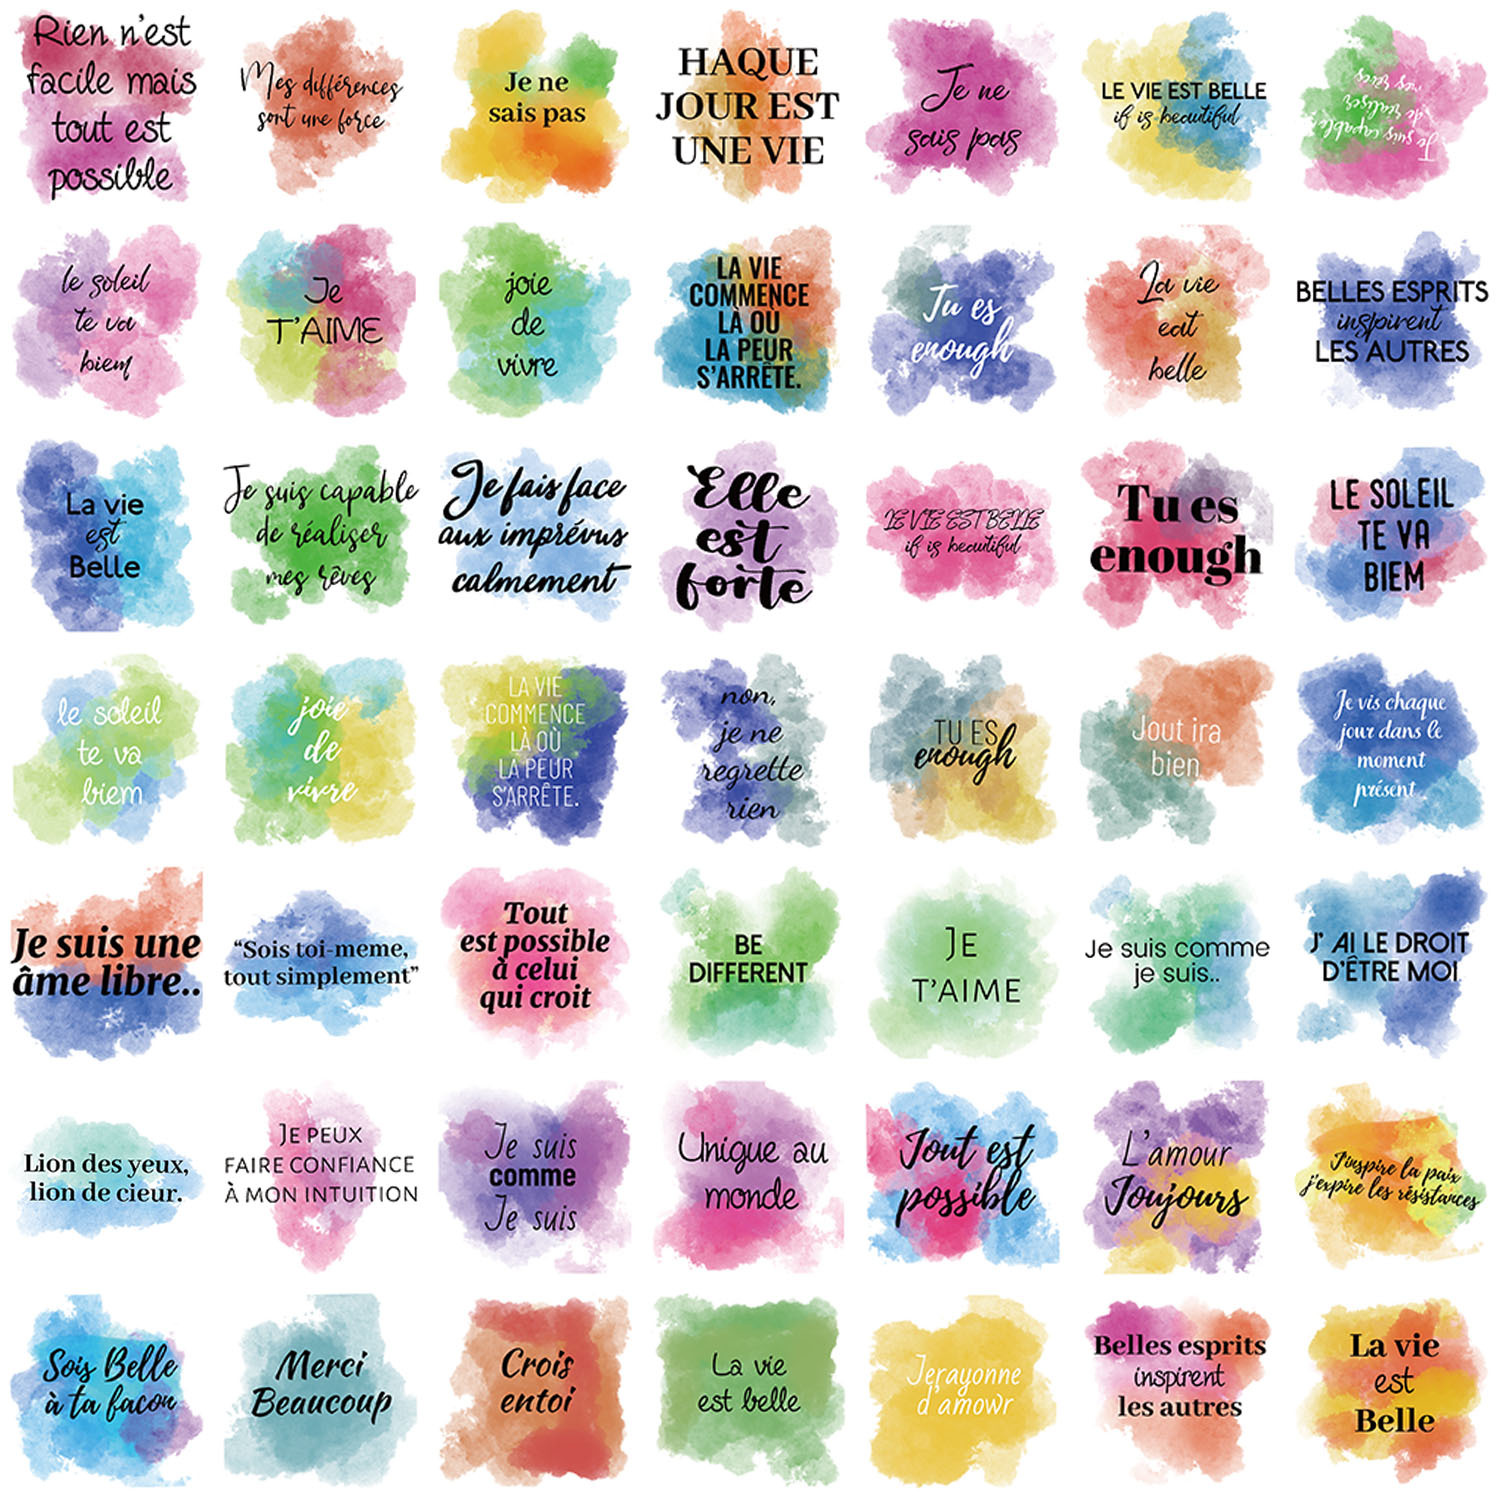 Rien n'est
facile mais
tout est
possible
Mes différences
sont une force
Je ne
sais pas
HAQUE
JOUR EST
UNE VIE
Je ne
sais pas
LE VIE EST BELLE
if is beautiful
Je suis capable
de réaliser
mes rêves
le soleil
te va
biem
Je
T'AIME
joie
de
vivre
LA VIE
COMMENCE
LÀ OU
LA PEUR
S'ARRÊTE.
Tu es
enough
La vie
eat
belle
BELLES ESPRITS
inspirent
LES AUTRES
La vie
est
Belle
Je suis capable
de réaliser
mes rêves
Je fais face
aux imprévus
calmement
Elle
est
forte
LE VIE EST BELLE
if is beautiful
Tu es
enough
LE SOLEIL
TE VA
BIEM
le soleil
te va
biem
joie
de
vivre
LA VIE
COMMENCE
LÀ OÙ
LA PEUR
S'ARRÊTE.
non,
je ne
regrette
rien
TU ES
enough
Jout ira
bien
Je vis chaque
jour dans le
moment
présent
Je suis une
âme libre..
“Sois toi-meme,
tout simplement”
Tout
est possible
à celui
qui croit
BE
DIFFERENT
JE
T'AIME
Je suis comme
je suis..
J' AI LE DROIT
D'ÊTRE MOI
Lion des yeux,
lion de cieur.
JE PEUX
FAIRE CONFIANCE
À MON INTUITION
Je suis
comme
Je suis
Unique au
monde
Tout est
possible
L'amour
Toujours
J'inspire la paix
j'expire les résistances
Sois Belle
à ta facon
Merci
Beaucoup
Crois
entoi
La vie
est belle
Jerayonne
d'amowr
Belles esprits
inspirent
les autres
La vie
est
Belle